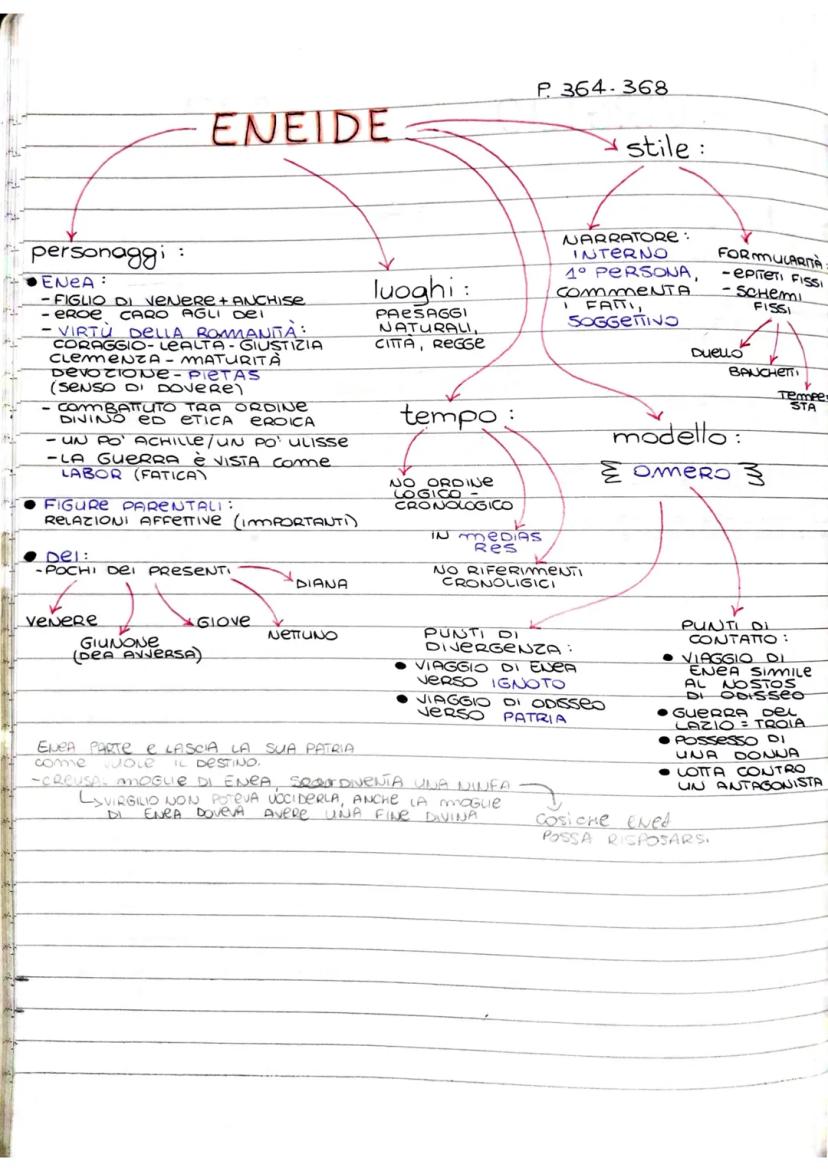 P. 364-368
ENEIDE
personaggi :
• ENEA :
- FIGLIO DI VENERE + ANCHISE
- EROE CARO AGLI DEI
- VIRTÙ DELLA ROMANITÀ :
CORAGGIO - LEALTÀ - GIUSTIZIA
CLEMENZA - MATURITÀ
DEVOZIONE - PIETAS
(SENSO DI DOVERE)
- COMBATTUTO TRA ORDINE
DIVINO ED ETICA EROICA
- UN PO' ACHILLE/UN PO' ULISSE
- LA GUERRA È VISTA COME
LABOR (FATICA)
• FIGURE PARENTALI :
RELAZIONI AFFETTIVE (IMPORTANTI)
• DEI :
- POCHI DEI PRESENTI
DIANA
VENERE
GIUNONE
(DEA AVVERSA)
GIOVE
NETTUNO
luoghi :
PAESAGGI
NATURALI,
CITTÀ, REGGE
tempo :
NO ORDINE
LOGICO -
CRONOLOGICO
IN MEDIAS
RES
NO RIFERIMENTI
CRONOLIGICI
stile :
NARRATORE :
INTERNO
1° PERSONA,
COMMENTA
I FATTI,
SOGGETTIVO
FORMULARITÀ :
- EPITETI FISSI
- SCHEMI
FISSI
DUELLO
BANCHETTI
TEMPE
STA
modello :
OMERO
PUNTI DI
DIVERGENZA :
• VIAGGIO DI ENEA
VERSO IGNOTO
• VIAGGIO DI ODISSEO
VERSO PATRIA
PUNTI DI
CONTATTO :
• VIAGGIO DI
ENEA SIMILE
AL NOSTOS
DI ODISSEO
• GUERRA DEL
LAZIO = TROIA
• POSSESSO DI
UNA DONNA
• LOTTA CONTRO
UN ANTAGONISTA
ENEA PARTE E LASCIA LA SUA PATRIA
COME VUOLE IL DESTINO.
- CREUSA, MOGLIE DI ENEA, DIVENTA UNA NINFA
VIRGILIO NON POTEVA UCCIDERLA, ANCHE LA MOGLIE
DI ENEA DOVEVA AVERE UNA FINE DIVINA
COSICHE ENEA
POSSA RISPOSARSI